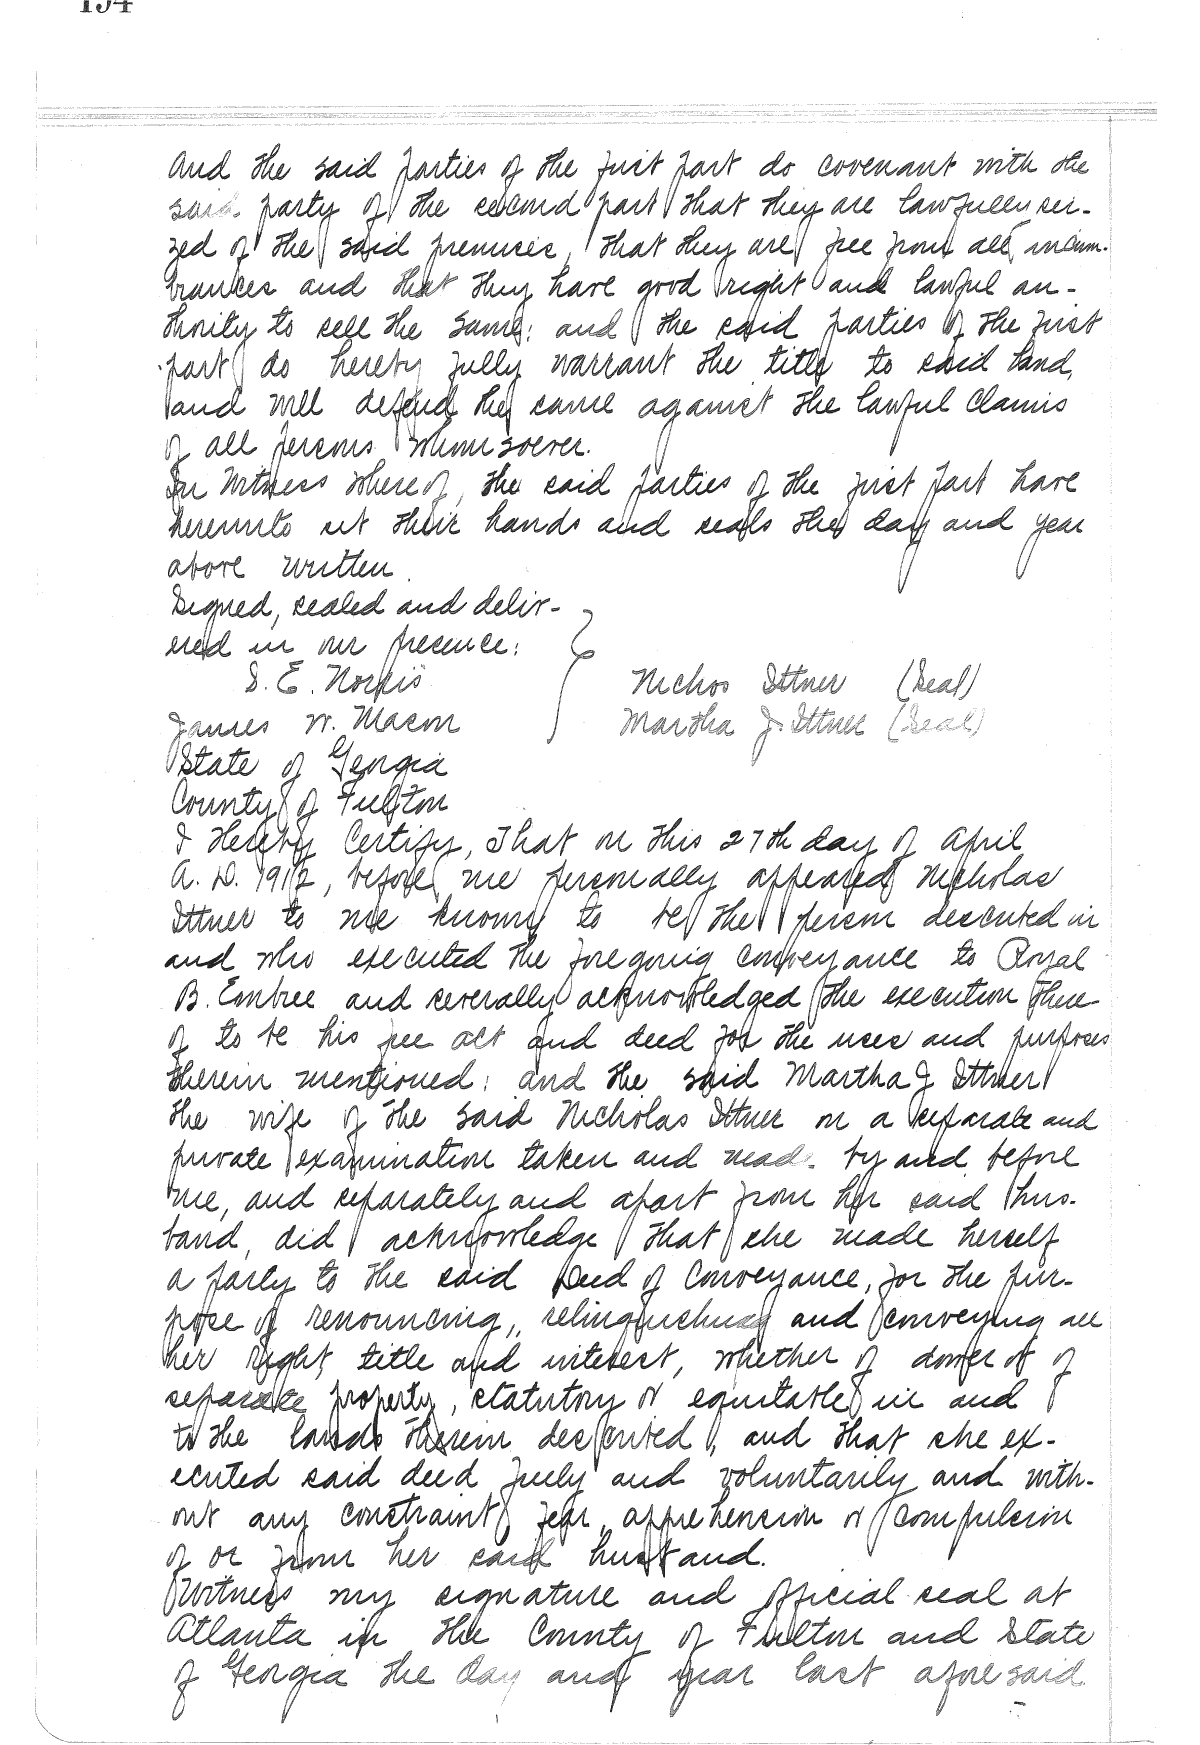 And the said parties of the first part do covenant with the
said party of the second part that they are lawfully sei-
zed of the said premises, that they are free from all incum-
brances and that they have good right and lawful au-
thority to sell the same; and the said parties of the first
part do hereby fully warrant the title to said land,
and will defend the same against the lawful claims
of all persons whomsoever.
In Witness Whereof, the said parties of the first part have
hereunto set their hands and seals the day and year
above written.
Signed, sealed and deliv-
ered in our presence:
S. E. Norris
Nichos Ittner (Seal)
James W. Mason
Martha J. Ittner (Seal)
State of Georgia
County of Fulton
I Hereby Certify, That on this 27th day of April
A. D. 1912, before me personally appeared Nicholas
Ittner to me known to be the person described in
and who executed the foregoing conveyance to Royal
B. Embree and severally acknowledged the execution there
of to be his free act and deed for the uses and purposes
therein mentioned; and the said Martha J Ittner
the wife of the said Nicholas Ittner on a separate and
private examination taken and made by and before
me, and separately and apart from her said hus-
band, did acknowledge that she made herself
a party to the said Deed of Conveyance, for the pur-
pose of renouncing, relinquishing and conveying all
her right, title and interest, whether of dower or of
separate property, statutory or equitable in and
to the lands therein described, and that she ex-
ecuted said deed freely and voluntarily and with-
out any constraint, fear, apprehension or compulsion
of or from her said husband.
Witness my signature and official seal at
Atlanta in the County of Fulton and State
of Georgia the day and year last aforesaid